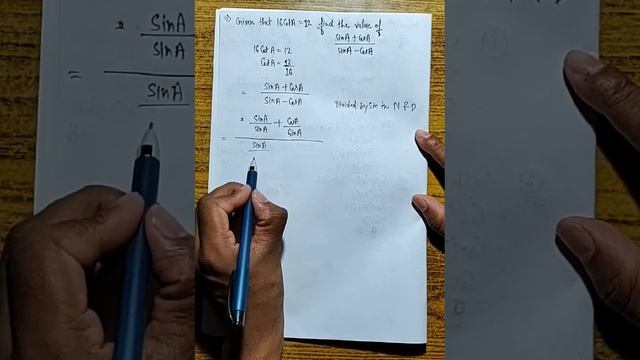 ⇒ Given that 16 Cot A = 12 find the value of
SinA + CosA
SinA - CosA
16 Cot A = 12
Cot A = 12
16
= SinA + CosA
SinA - CosA
Divided by Sin in N & D
= SinA + CosA
SinA SinA
= SinA